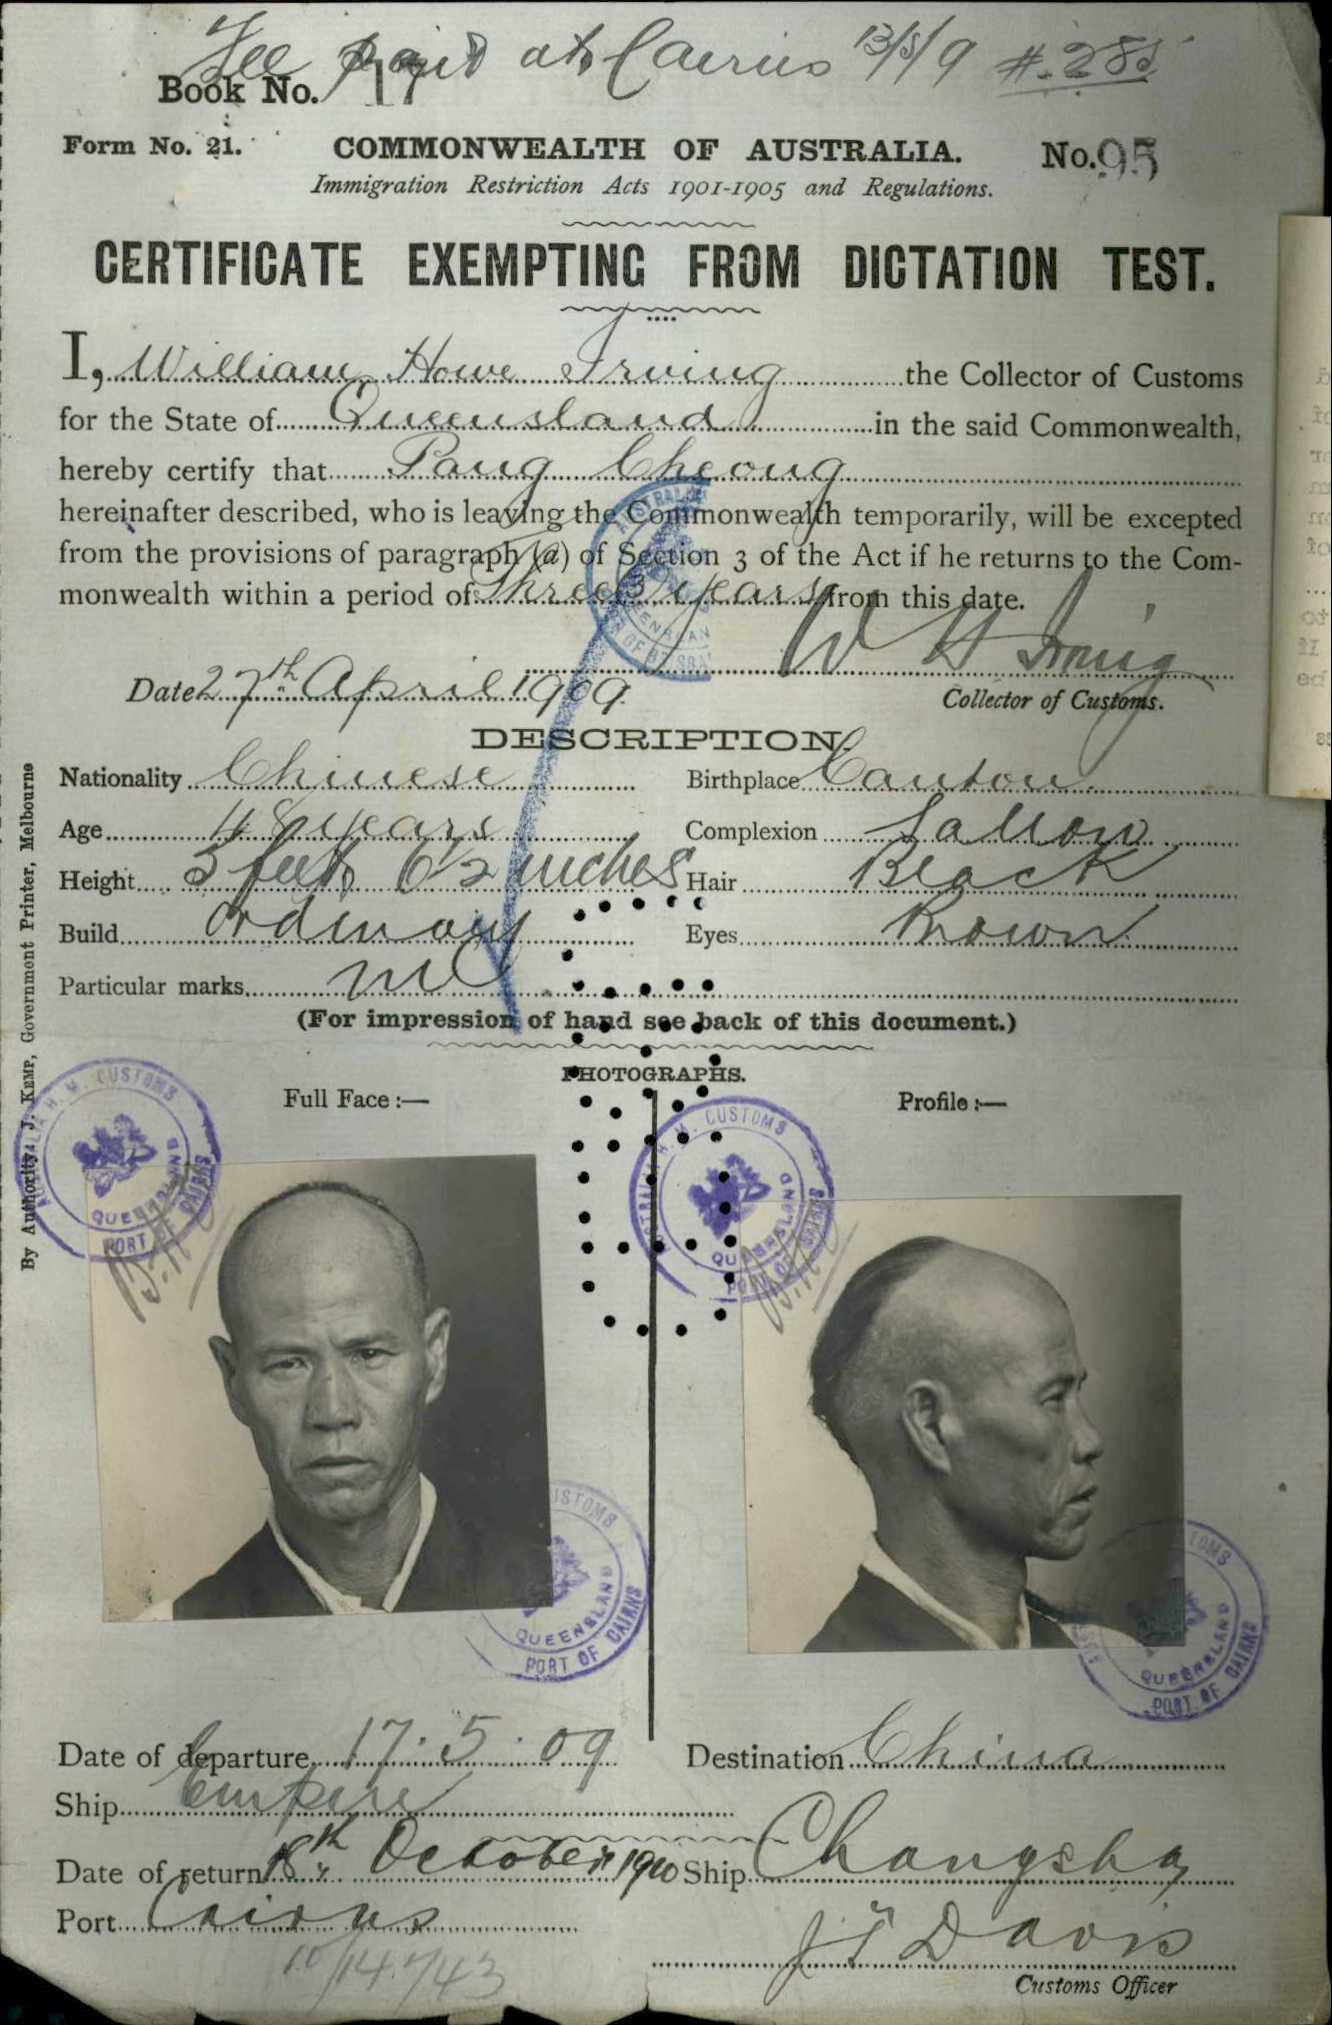 Fee paid at Cairns 13/5/9 #.285
Book No. 17
Form No. 21. COMMONWEALTH OF AUSTRALIA. No. 95
Immigration Restriction Acts 1901-1905 and Regulations.
CERTIFICATE EXEMPTING FROM DICTATION TEST.
I, William Howe Irving the Collector of Customs
for the State of Queensland in the said Commonwealth,
hereby certify that Pang Cheong
hereinafter described, who is leaving the Commonwealth temporarily, will be excepted
from the provisions of paragraph (a) of Section 3 of the Act if he returns to the Com-
monwealth within a period of Three years from this date.
W H Irving
Date 27th April 1909. Collector of Customs.
DESCRIPTION.
Nationality Chinese Birthplace Canton
Age 48 years Complexion Sallow
Height 5 feet 6½ inches Hair Black
Build Ordinary Eyes Brown
Particular marks nil
(For impression of hand see back of this document.)
PHOTOGRAPHS.
Full Face:— Profile:—
By Authority: J. KEMP, Government Printer, Melbourne
AUSTRALIA H. M. CUSTOMS
QUEENSLAND
PORT OF CAIRNS
AUSTRALIA H. M. CUSTOMS
QUEENSLAND
PORT OF CAIRNS
CUSTOMS
QUEENSLAND
PORT OF CAIRNS
CUSTOMS
QUEENSLAND
PORT OF CAIRNS
Date of departure 17.5.09 Destination China
Ship Empire
Date of return 18th October 1910 Ship Changsha
Port Cairns
J T Davis
10/14743
Customs Officer